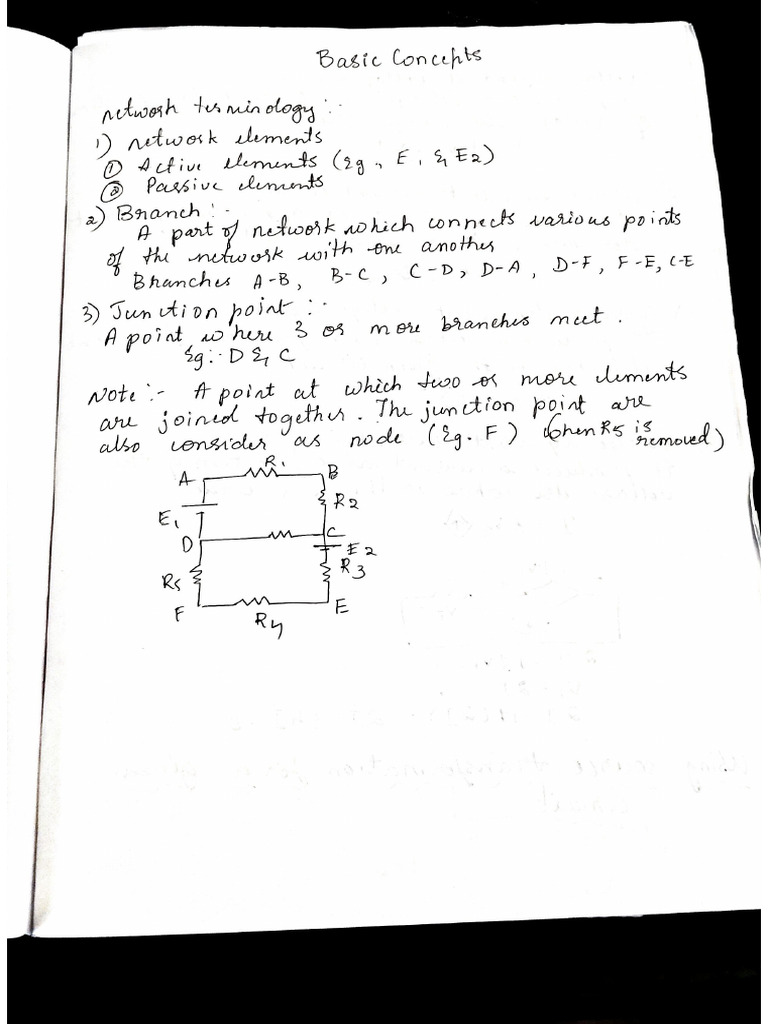 Basic Concepts
network terminology :-
1) network elements
① Active elements (Eg., E1 & E2)
② Passive elements
2) Branch :-
A part of network which connects various points
of the network with one another
Branches A-B, B-C, C-D, D-A, D-F, F-E, C-E
3) Junction point :-
A point where 3 or more branches meet.
Eg:- D & C
Note :- A point at which two or more elements
are joined together. The junction point are
also consider as node (Eg. F) (when R5 is
removed)
A R1 B
R2
E1
D C
E2
R5 R3
F R4 E